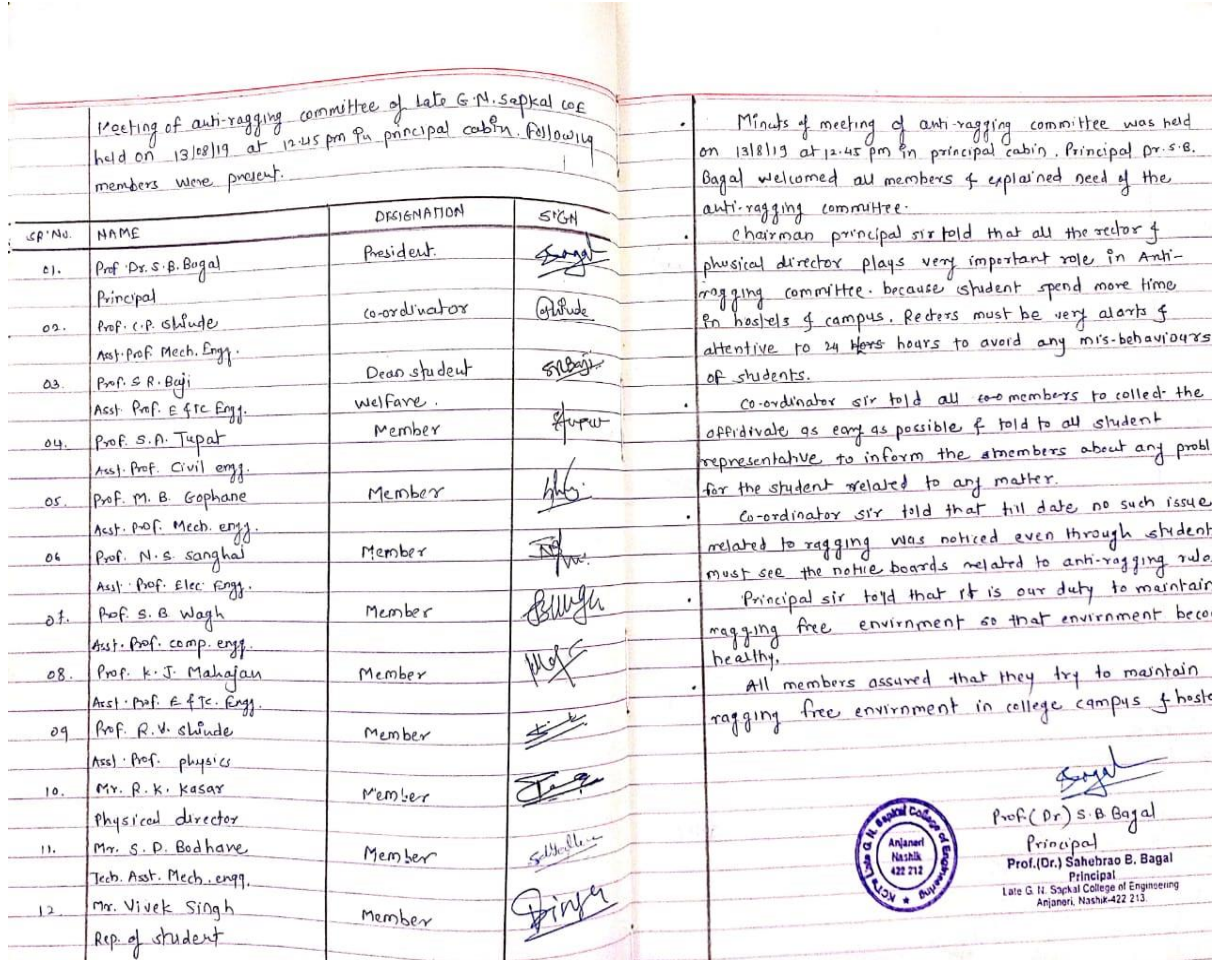 Meeting of anti-ragging committee of Late G.N. Sapkal COE
held on 13/08/19 at 12.45 pm in principal cabin. Following
members were present.
SR.NO. NAME DESIGNATION SIGN
01. Prof. Dr. S.B. Bagal President.
Principal
02. Prof. C.P. Shinde Co-ordinator
Asst. Prof. Mech. Engg.
03. Prof. S R. Baji Dean student
Asst. Prof. E & TC Engg. welfare.
04. Prof. S.A. Tupat Member
Asst. Prof. Civil engg.
05. Prof. M. B. Gophane Member
Asst. Prof. Mech. engg.
06 Prof. N.S. Sanghai Member
Asst. Prof. Elec Engg.
07. Prof. S. B Wagh Member
Asst. Prof. comp. engg.
08. Prof. K. J. Mahajan Member
Asst. Prof. E & Tc. Engg.
09 Prof. R.V. Shinde Member
Asst. Prof. physics
10. Mr. R.K. Kasar Member
Physical director
11. Mr. S. D. Bodhare Member
Tech. Asst. Mech. engg.
12 Mr. Vivek Singh Member
Rep. of student
Minuts of meeting of anti-ragging committee was held
on 13/8/19 at 12.45 pm in principal cabin. Principal Dr. S.B.
Bagal welcomed all members & explained need of the
anti-ragging committee.
Chairman principal sir told that all the rector &
physical director plays very important role in Anti-
ragging committee. because student spend more time
in hostels & campus. Recters must be very alarts &
attentive to 24 hours to avoid any mis-behaviours
of students.
Co-ordinator sir told all members to colled the
offidivate as eary as possible & told to all student
representative to inform the members about any probl
for the student related to any matter.
Co-ordinator sir told that till date no such issue
related to ragging was noticed even through student
must see the notie boards related to anti-ragging rule
Principal sir told that it is our duty to maintain
ragging free envirnment so that envirnment beco
healthy.
All members assured that they try to maintain
ragging free envirnment in college campus & hoste
Prof.(Dr) S.B Bagal
Principal
Prof.(Dr.) Sahebrao B. Bagal
Principal
Late G. N. Sapkal College of Engineering
Anjaneri, Nashik-422 213.
KCT's Late G. N. Sapkal College of Engineering
Anjaneri
Nashik
422 212